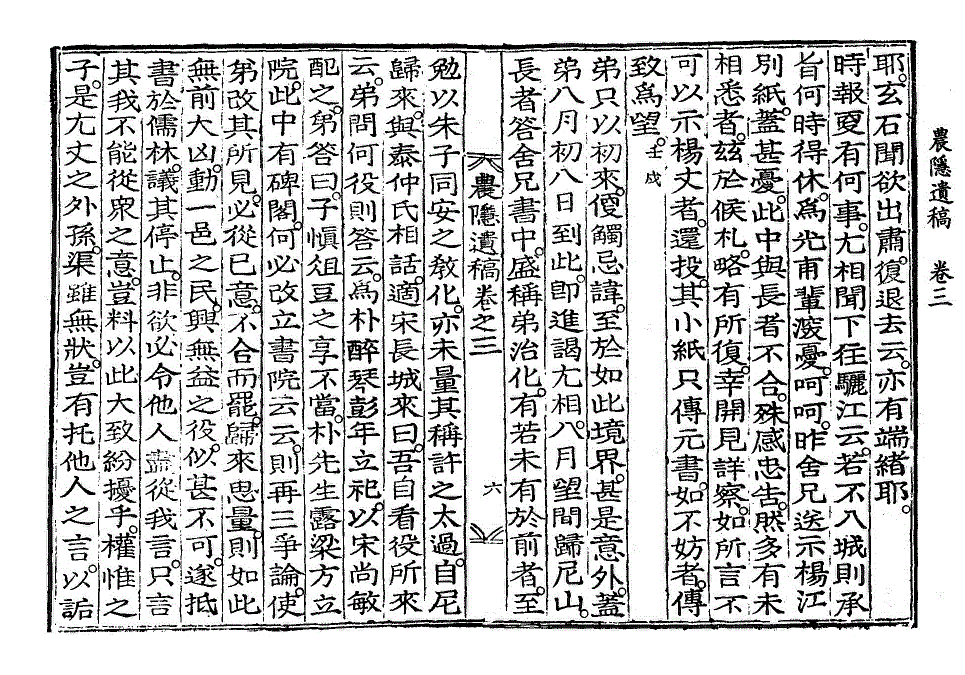 農隱遺稿　卷三
耶。玄石聞欲出肅。復退去云。亦有端緖耶。
時報夏有何事。尤相聞下在驪江云。若不入城則承
旨何時得休。爲光甫輩深憂。呵呵。昨舍兄送示楊江
別紙。蓋甚憂。此中與長者不合。殊感忠告。然多有未
相悉者。玆於候札。略有所復。幸開見詳察。如所言不
可以示楊丈者。還投。其小紙只傳元書。如不妨者。傳
致爲望。壬戌
弟只以初來。便觸忌諱。至於如此境界。甚是意外。蓋
弟八月初八日到此。卽進謁尤相。八月望間歸尼山。
長者答舍兄書中。盛稱弟治化。有若未有於前者。至
農隱遺稿卷之三
六
勉以朱子同安之敎化。亦未量其稱許之太過。自尼
歸來。與泰仲氏相話。適宋長城來曰。吾自看役所來
云。弟問何役則答云。爲朴醉琴彭年立祀。以宋尙敏
配之。弟答曰。子愼俎豆之享不當。朴先生露梁方立
院。此中有碑閣。何必改立書院云云。則再三爭論。使
弟改其所見。必從已意。不合而罷。歸來思量。則如此
無前大凶。動一邑之民。興無益之役。似甚不可。遂抵
書於儒林。議其停止。非欲必令他人盡從我言。只言
其我不能從衆之意。豈料以此大致紛擾乎。權惟之
子。是尤丈之外孫。渠雖無狀。豈有托他人之言。以詬